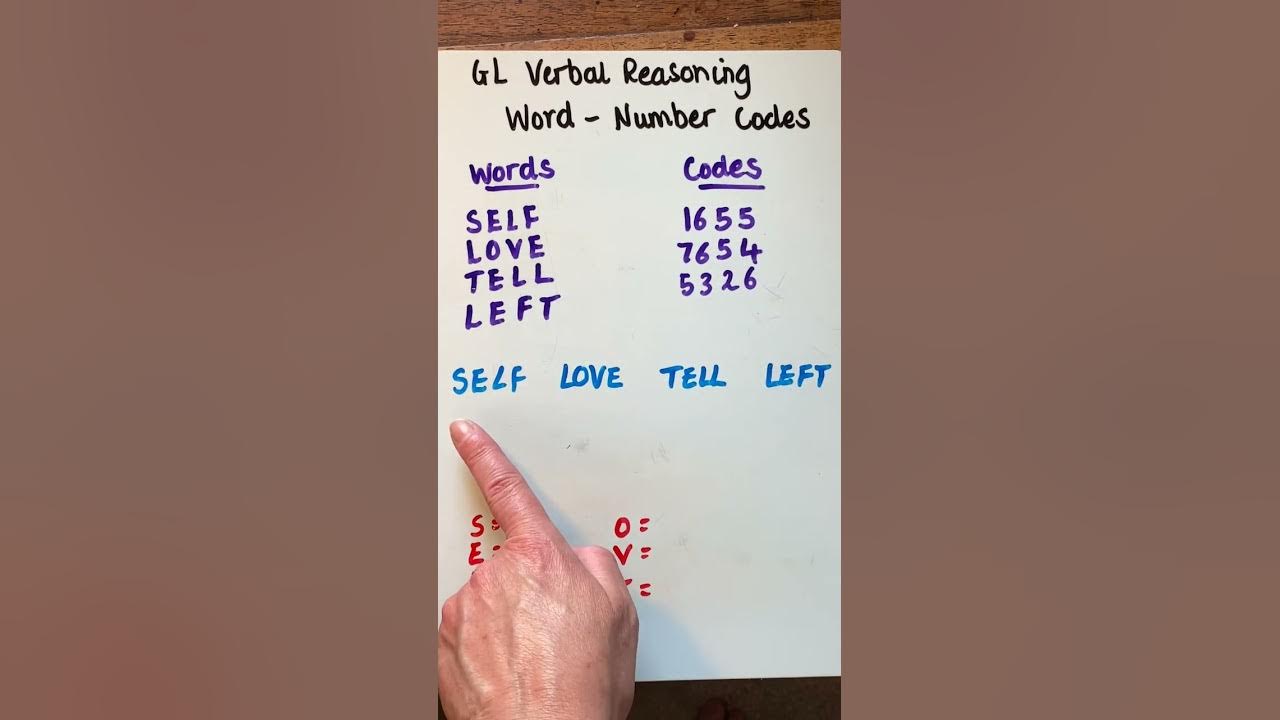 GL Verbal Reasoning
Word - Number Codes
Words Codes
SELF 1655
LOVE 7654
TELL 5326
LEFT
SELF LOVE TELL LEFT
S= O=
E= V=
=